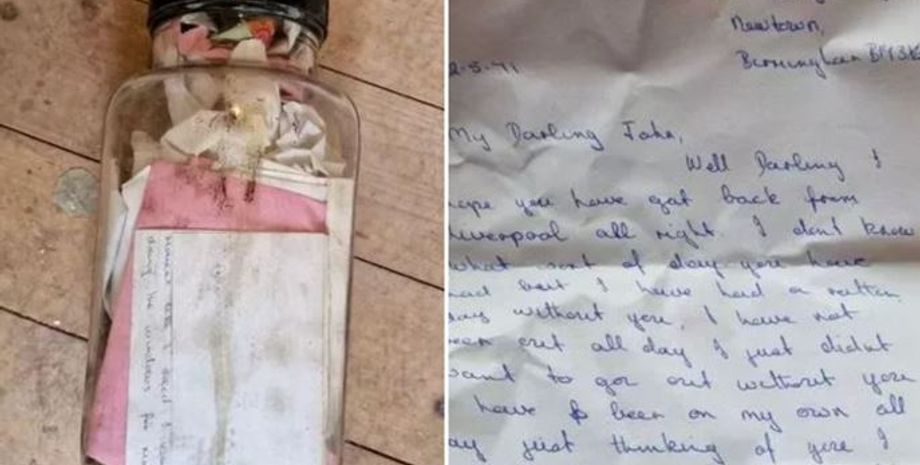 doing the windows for
Newtown,
Birmingham B193
2-5-71
My Darling John,
Well Darling I
ope you have got back from
Liverpool all right. I dont know
what sort of day you have
had but I have had a rotten
ay without you, I have not
een out all day I just didnt
want to go out without you
have been on my own all
ay just thinking of you I